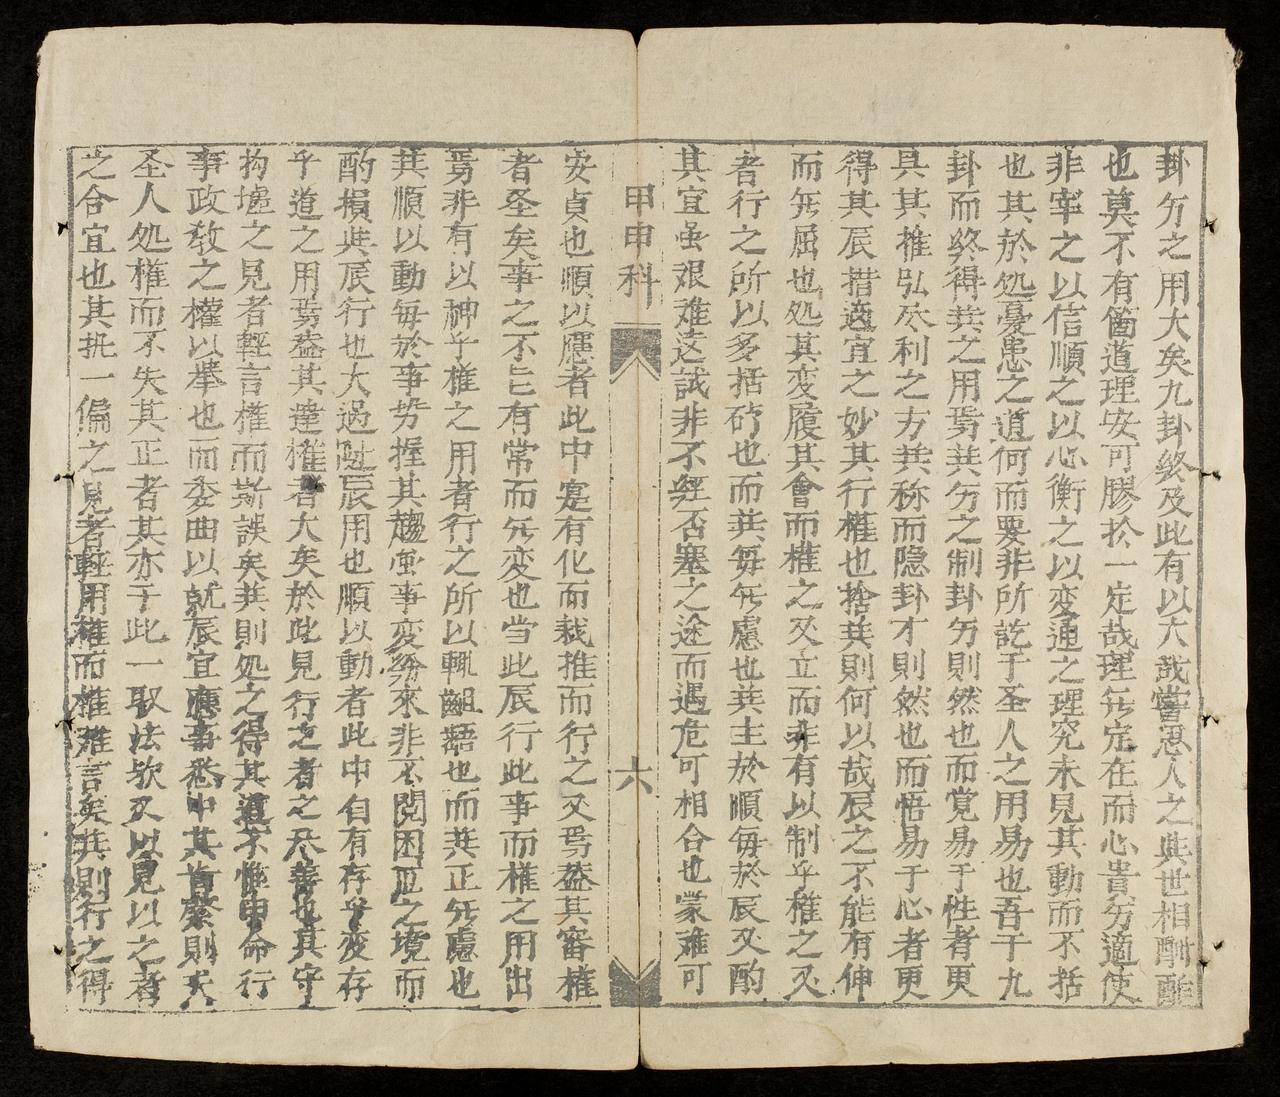 卦夯之用大矣九卦終及此有以大哉嘗思人之與世相酬酢
也莫不有箇道理安可膠扵一定哉理旡定在而心貴夯適使
非宰之以信順之以心衡之以変通之理究未見其動而不括
也其於処憂患之道何而要非所訖于圣人之用易也吾于九
卦而終得其之用焉其夯之制卦夯則然也而覚易于性者更
具其推弘尽利之方其称而隐卦才則然也而悟易于心者更
得其辰措適宜之妙其行權也捨其則何以哉辰之不能有伸
而旡屈也処其変履其會而權之又立而非有以制乎權之又
者行之所以多括也而其每旡慮也其主於順每於辰又酌
其宜虽艰难迭試非不経否塞之途而遇危可相合也蒙难可
甲申科
六
安貞也順以應者此中寔有化而裁推而行之又焉盍其審權
者圣矣事之不能有常而旡変也当此辰行此事而權之用出
焉非有以神乎權之用者行之所以輒齟齬也而其正旡慮也
其順以動每於事势握其趨虽事変紛來非不閱困厄之境而
酌損與辰行也大過随辰用也順以動者此中自有存乎変存
乎道之用焉盍其達權者大矣於此見行之者之尽善也其守
拘墟之見者軽言權而斯誤矣其則処之得其道不惟申命行
事政教之權以挙也而委曲以就辰宜應事悉中其肯綮則夫
圣人処權而不失其正者其亦于此一取法欤又以見以之者
之合宜也其执一偏之見者軽用權而權难言矣其則行之得